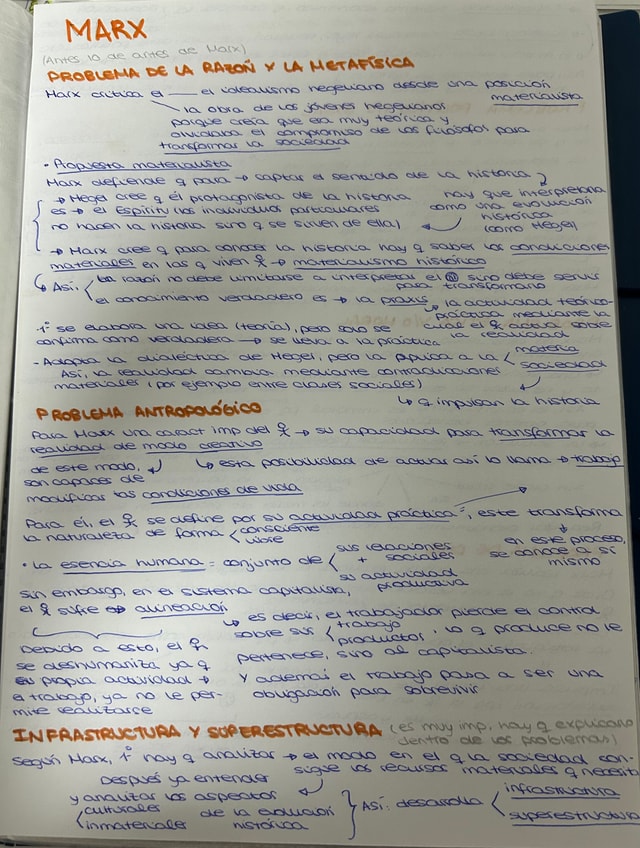 MARX
(Antes lo de antes de Marx)
PROBLEMA DE LA RAZOŃ Y LA METAFÍSICA
Marx critica el el idealismo hegeliano desde una posición
materialista
la obra de los jóvenes hegelianos
porque creía que era muy teórica y
olvidaba el compromiso de los filósofos para
transformar la sociedad
· Propuesta materialista
Marx defiende q para → captar el sentido de la historia
hay que interpretarla
como una evolución
histórica
(como Hegel)
→ Hegel cree q el protagonista de la historia
es → el espíritu (los individuos particulares
no hacen la historia sino q se sirven de ella)
→ Marx cree q para conocer la historia hay q saber las condiciones
materiales en las q viven → materialismo histórico
Así, la razón no debe limitarse a interpretar el sino debe servir
para transformarlo
el conocimiento verdadero es → la praxis → la actividad teórico-
práctica mediante la
cual el actúa sobre
la realidad
1º se elabora una idea (teoría), pero solo se
confirma como verdadera → se lleva a la práctica
- Adopta la dialéctica de Hegel, pero la aplica a la materia
sociedad
Así, la realidad cambia mediante contradicciones
materiales (por ejemplo entre clases sociales)
↳ q impulsan la historia
PROBLEMA ANTROPOLÓGICO
Para Marx una caract imp del → su capacidad para transformar la
realidad de modo creativo
↳ esta posibilidad de actuar así lo llama → trabajo
de este modo,
son capaces de
modificar las condiciones de vida
Para él, el se define por su actividad práctica =, este transforma
la naturaleza de forma consciente
libre
en este proceso,
se conoce a sí
mismo
· La esencia humana = conjunto de sus relaciones
+ sociales
su actividad
productiva
sin embargo, en el sistema capitalista,
el sufre alineación
↳ es decir, el trabajador pierde el control
sobre sus trabajo
productos, lo q produce no le
pertenece, sino al capitalista.
Y además el trabajo pasa a ser una
obligación para sobrevivir
Debido a esto, el
se deshumaniza ya q
su propia actividad →
el trabajo, ya no le per-
mite realizarse
INFRASTRUCTURA Y SUPERESTRUCTURA (es muy imp. hay q explicarlo
dentro de los problemas)
Según Marx, 1º hay q analizar → el modo en el q la sociedad con-
sigue los recursos materiales q necesita
Después ya entender
y analizar los aspectos
culturales
inmateriales
de la evolución
histórica
Así: desarrolla infrastructura
superestructura